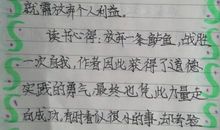 就需放弃个人利益。
读书心得：放弃一条鲈鱼，战胜
一次自我，作者因此获得了道德
实践的勇气，最终也凭此力量走
向成功，有时看似很小的事，却考验